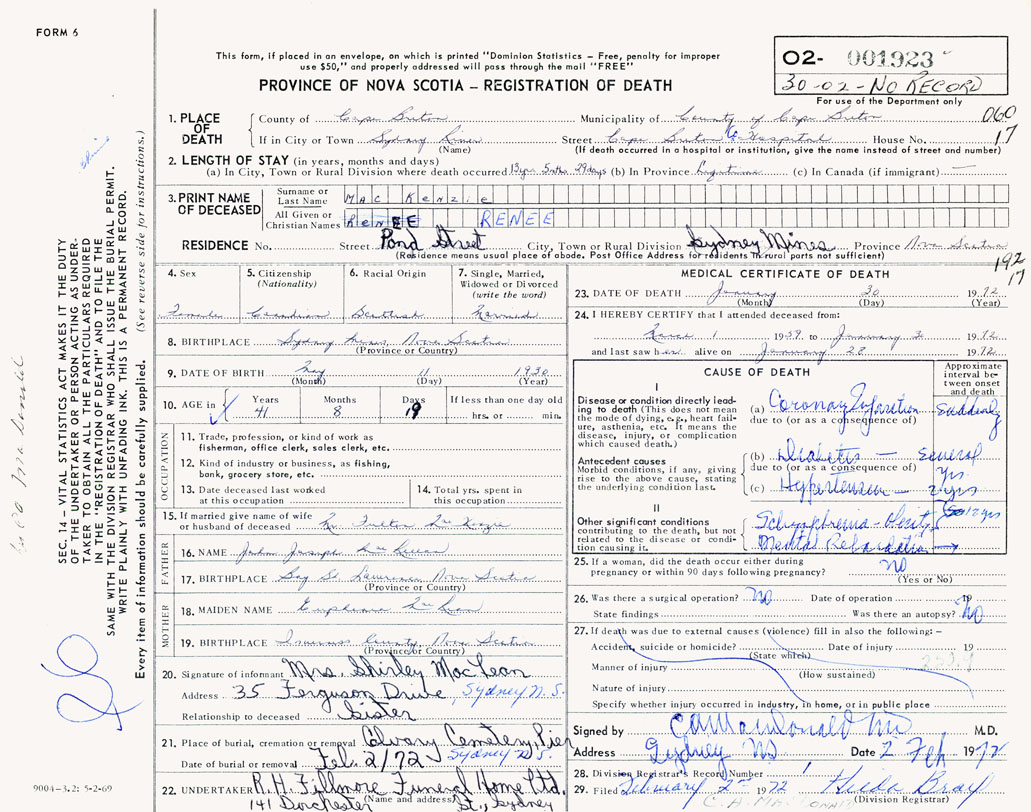 FORM 6
This form, if placed in an envelope, on which is printed "Dominion Statistics – Free, penalty for improper
use $50," and properly addressed will pass through the mail "FREE"
PROVINCE OF NOVA SCOTIA – REGISTRATION OF DEATH
02- 001923
30-02-NO RECORD
For use of the Department only
060
17
1. PLACE OF DEATH
County of Cape Breton Municipality of County of Cape Breton
If in City or Town Sydney River Street Cape Breton Co Hospital House No.
(Name) (If death occurred in a hospital or institution, give the name instead of street and number)
2. LENGTH OF STAY (in years, months and days)
(a) In City, Town or Rural Division where death occurred 13yrs 5mths 29days (b) In Province Lifetime (c) In Canada (if immigrant) —
3. PRINT NAME OF DECEASED
Surname or Last Name Mac Kenzie
All Given or Christian Names RENEE
RESIDENCE No. Street Pond Street City, Town or Rural Division Sydney Mines Province Nova Scotia
(Residence means usual place of abode. Post Office Address for residents in rural parts not sufficient)
4. Sex
Female
5. Citizenship (Nationality)
Canadian
6. Racial Origin
Scottish
7. Single, Married, Widowed or Divorced (write the word)
Married
8. BIRTHPLACE Sydney Mines, Nova Scotia
(Province or Country)
9. DATE OF BIRTH May 11 1930
(Month) (Day) (Year)
10. AGE in Years 41 Months 8 Days 19 If less than one day old hrs. or min.
OCCUPATION
11. Trade, profession, or kind of work as fisherman, office clerk, sales clerk, etc.
12. Kind of industry or business, as fishing, bank, grocery store, etc.
13. Date deceased last worked at this occupation
14. Total yrs. spent in this occupation
15. If married give name of wife or husband of deceased Fulton
FATHER
16. NAME John Joseph
17. BIRTHPLACE Bay St. Lawrence Nova Scotia
(Province or Country)
MOTHER
18. MAIDEN NAME
19. BIRTHPLACE Inverness County, Nova Scotia
(Province or Country)
20. Signature of informant Mrs. Shirley MacLean
Address 35 Ferguson Drive Sydney N.S.
Relationship to deceased Sister
21. Place of burial, cremation or removal Calvary Cemetery, Pier
Date of burial or removal Feb. 2/72 Sydney N.S.
22. UNDERTAKER R.H. Fillmore Funeral Home Ltd.
(Name and address) 141 Dorchester St., Sydney
MEDICAL CERTIFICATE OF DEATH
192
17
23. DATE OF DEATH January 30 1972
(Month) (Day) (Year)
24. I HEREBY CERTIFY that I attended deceased from:
1 1959 to January 1972
and last saw her alive on January 28 1972
CAUSE OF DEATH
Approximate interval between onset and death
I
Disease or condition directly leading to death (This does not mean the mode of dying, e.g., heart failure, asthenia, etc. It means the disease, injury, or complication which caused death.)
(a) Coronary Infarction Suddenly
due to (or as a consequence of)
Antecedent causes
Morbid conditions, if any, giving rise to the above cause, stating the underlying condition last.
(b) Diabetis — Several yrs
due to (or as a consequence of)
(c) Hypertension — yrs
II
Other significant conditions contributing to the death, but not related to the disease or condition causing it.
Schizophrenia - Obesity
Mental Retardation
25. If a woman, did the death occur either during pregnancy or within 90 days following pregnancy? no
(Yes or No)
26. Was there a surgical operation? no Date of operation 19
State findings Was there an autopsy? No
27. If death was due to external causes (violence) fill in also the following: –
Accident, suicide or homicide? Date of injury 19
(State which)
Manner of injury
(How sustained)
Nature of injury
Specify whether injury occurred in industry, in home, or in public place
Signed by M.D.
Address Sydney NS Date 2 Feb 1972
28. Division Registrar's Record Number
29. Filed February 2nd 1972 Hilda Bray
(Division Registrar)
SEC. 14 – VITAL STATISTICS ACT MAKES IT THE DUTY
OF THE UNDERTAKER OR PERSON ACTING AS UNDER-
TAKER TO OBTAIN ALL THE PARTICULARS REQUIRED
IN THE "REGISTRATION OF DEATH" AND TO FILE THE
SAME WITH THE DIVISION REGISTRAR WHO SHALL ISSUE THE BURIAL PERMIT.
WRITE PLAINLY WITH UNFADING INK. THIS IS A PERMANENT RECORD.
Every item of information should be carefully supplied. (See reverse side for instructions.)
9004–3.2: 5-2-69